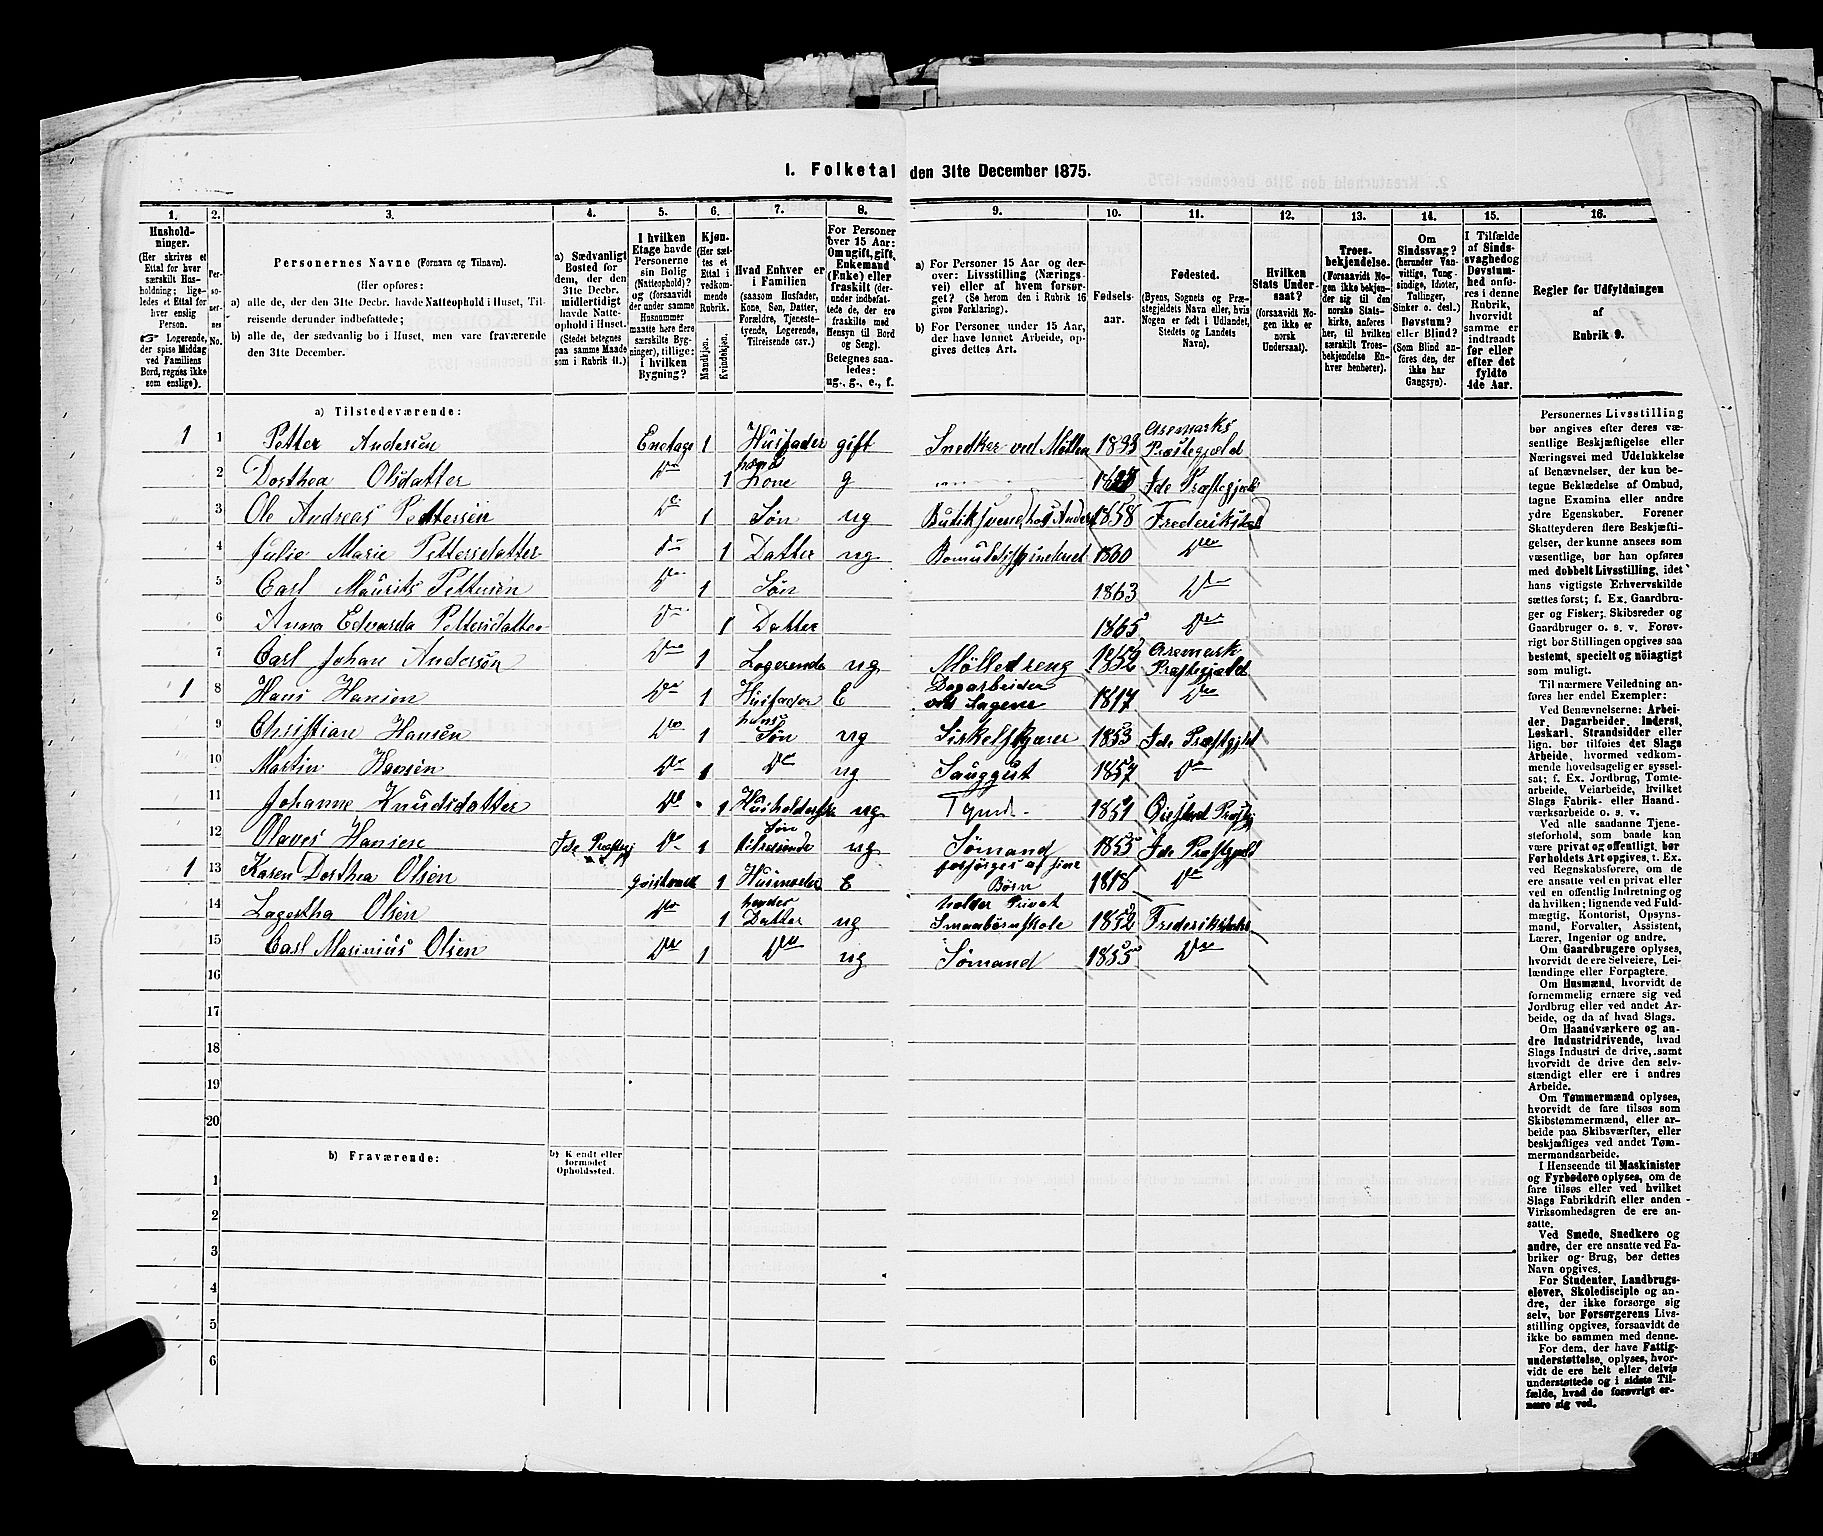 1. Folketal den 31te December 1875.
1. 2. 3. 4. 5. 6. 7. 8. 9. 10. 11. 12. 13. 14. 15. 16.
Husholdninger.
(Her skrives et Ettal for hver særskilt Husholdning; ligeledes et Ettal for hver enslig Person.
Logerende, der spise Middag ved Familiens Bord, regnes ikke som enslige).
Personernes No.
Personernes Navne (Fornavn og Tilnavn).
(Her opføres:
a) alle de, der den 31te Decbr. havde Natteophold i Huset, Tilreisende derunder indbefattede;
b) alle de, der sædvanlig bo i Huset, men vare fraværende den 31te December.
a) Sædvanligt Bosted for dem, der den 31te Decbr. midlertidigt havde Natteophold i Huset.
(Stedet betegnes paa samme Maade som i Rubrik 11.)
I hvilken Etage havde Personerne sin Bolig (Natteophold)? og (forsaavidt der under samme Husnummer maatte høre flere særskilte Bygninger), tillige: i hvilken Bygning?
Kjøn.
(Her sættes et Ettal i vedkommende Rubrik.
Mandkjøn.
Kvindekjøn.
Hvad Enhver er i Familien
(saasom Husfader, Kone, Søn, Datter, Forældre, Tjenestetyende, Logerende, Tilreisende osv.)
For Personer over 15 Aar: Om ugift, gift, Enkemand (Enke) eller fraskilt (derunder indbefattede de, der ere fraskilte med Hensyn til Bord og Seng).
Betegnes saaledes: ug., g., e., f.
a) For Personer 15 Aar og derover: Livsstilling (Næringsvei) eller af hvem forsørget? (Se herom den i Rubrik 16 givne Forklaring).
b) For Personer under 15 Aar, der have lønnet Arbeide, opgives dettes Art.
Fødselsaar.
Fødested.
(Byens, Sognets og Præstegjeldets Navn eller, hvis Nogen er født i Udlandet, Stedets og Landets Navn).
Hvilken Stats Undersaat?
(forsaavidt Nogen ikke er norsk Undersaat).
Troesbekjendelse.
(Forsaavidt Nogen ikke bekjender sig til den norske Statskirke, anføres her, til hvilken særskilt Troesbekjendelse Enhver henhører).
Om Sindssvag?
(herunder Vanvittige, Tungsindige, Idioter, Tullinger, Sinker o. desl.)
Døvstum? eller Blind?
(Som Blind anføres den, der ikke har Gangsyn).
I Tilfælde af Sindssvaghed og Døvstumhed anføres i denne Rubrik, hvorvidt samme er indtraadt før eller efter det fyldte 4de Aar.
Regler for Udfyldningen
af
Rubrik 9.
a) Tilstedeværende:
1 1 Petter Andersen Enetage 1 Husfader gift Snedker ved Møllen 1833 Aremarks Præstegjæld
2 Dorthea Olsdatter Do 1 hans Kone g Ide Præstegjæld
3 Ole Andreas Pettersen Do 1 Søn ug 1858 Frederikshald
4 Julie Marie Pettersdatter Do 1 Datter ug 1860 Do
5 Carl Maurits Pettersen Do 1 Søn 1863 Do
6 Anna Edvarda Pettersdatter Do 1 Datter 1865 Do
7 Carl Johan Andersen Do 1 Logerende ug Mølledreng Aremark Præstegjæld
1 8 Hans Hansen Do 1 Husfader E Dagarbeider ved Sagene 1817 Do
9 Christian Hansen Do 1 hans Søn ug 1853 Ide Præstgjeld
10 Martin Hansen Do 1 Do ug 1857 Do
11 Johanne Knudsdatter Do 1 ug Tyende 1851
12 Olaves Hansen Ide Præstegj Do 1 Søn ug Sømand 1855 Ide Præstgjæld
1 13 Karen Dorthea Olsen 1 Husmoder E forsørges af sine Børn 1818 Do
14 Lagertha Olsen Do 1 hendes Datter ug holder Privat Smaabørnskole 1852 Frederikshald
15 Carl Marinius Olsen Do 1 Do ug Sømand 1855 Do
16
17
18
19
20
b) Fraværende:
b) Kjendt eller formodet Opholdssted.
1
2
3
4
5
6
Personernes Livsstilling
bør angives efter deres væ-
sentlige Beskjæftigelse eller
Næringsvei med Udelukkelse
af Benævnelser, der kun be-
tegne Beklædelse af Ombud,
tagne Examina eller andre
ydre Egenskaber. Forener
Skatteyderen flere Beskjæfti-
gelser, der kunne ansees som
væsentlige, bør han opføres
med dobbelt Livsstilling, idet
hans vigtigste Erhvervskilde
sættes først; f. Ex. Gaardbru-
ger og Fisker; Skibsreder og
Gaardbruger o. s. v. Forøv-
rigt bør Stillingen opgives saa
bestemt, specielt og nøiagtigt
som muligt.
Til nærmere Veiledning an-
føres her endel Exempler:
Ved Benævnelserne: Arbei-
der, Dagarbeider, Inderst,
Løskarl, Strandsidder eller
lign. bør tilføies det Slags
Arbeide, hvormed vedkom-
mende hovedsagelig er syssel-
sat; f. Ex. Jordbrug, Tomte-
arbeide, Veiarbeide, hvilket
Slags Fabrik- eller Haand-
værksarbeide o. s. v.
Ved alle saadanne Tjene-
steforhold, som baade kan
være privat og offentligt, bør
Forholdets Art opgives, t. Ex.
ved Regnskabsførere, om de
ere ansatte ved en privat eller
ved en offentlig Indretning og
da hvilken; lignende ved Fuld-
mægtig, Kontorist, Opsyns-
mand, Forvalter, Assistent,
Lærer, Ingeniør og andre.
Om Gaardbrugere oplyses,
hvorvidt de ere Selveiere, Lei-
lændinge eller Forpagtere.
Om Husmænd, hvorvidt de
fornemmelig ernære sig ved
Jordbrug eller ved andet Ar-
beide, og da af hvad Slags.
Om Haandværkere og an-
dre Industridrivende, hvad
Slags Industri de drive, samt
hvorvidt de drive den selv-
stændigt eller ere i andres
Arbeide.
Om Tømmermænd oplyses,
hvorvidt de fare tilsøs som
Skibstømmermænd, eller ar-
beide paa Skibsværfter, eller
beskjæftiges ved andet Tøm-
mermandsarbeide.
I Henseende til Maskinister
og Fyrbødere oplyses, om de
fare tilsøs eller ved hvilket
Slags Fabrikdrift eller anden
Virksomhedsgren de ere an-
satte.
Ved Smede, Snedkere og
andre, der ere ansatte ved Fa-
briker og Brug, bør dettes
Navn opgives.
For Studenter, Landbrugs-
elever, Skoledisciple og an-
dre, der ikke forsørge sig
selv, bør Forsørgerens Livs-
stilling opgives, forsaavidt de
ikke bo sammen med denne.
For dem, der have Fattig-
understøttelse, oplyses, hvor-
vidt de ere helt eller delvis
understøttede og i sidste Til-
fælde, hvad de forøvrigt er-
nære sig ved.